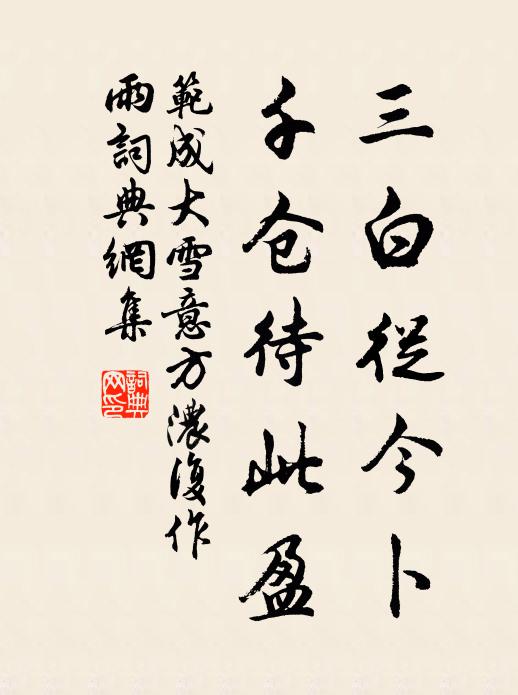 三白從今卜
千仓待此盈
範成大雪意方濃復作
雨詞典網集
詞典網印